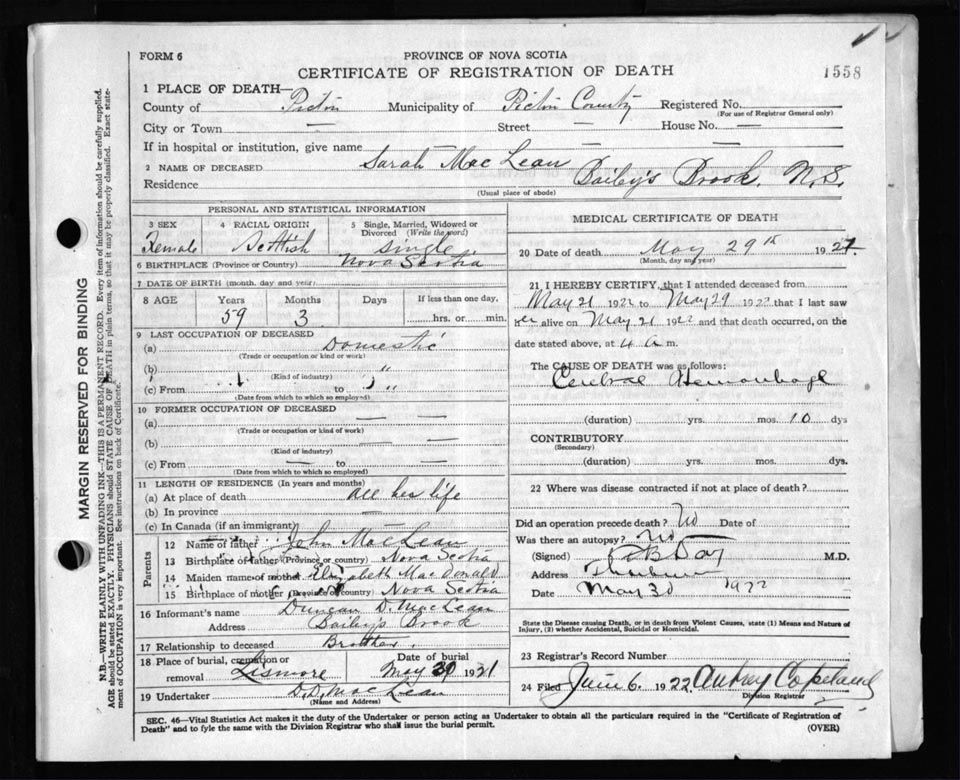 FORM 6
PROVINCE OF NOVA SCOTIA
CERTIFICATE OF REGISTRATION OF DEATH
1558
MARGIN RESERVED FOR BINDING
N.B.—WRITE PLAINLY WITH UNFADING INK—THIS IS A PERMANENT RECORD. Every item of information should be carefully supplied.
AGE should be stated EXACTLY. PHYSICIANS should STATE CAUSE OF DEATH in plain terms, so that it may be properly classified. Exact state-
ment of OCCUPATION is very important. See instructions on back of Certificate.
1 PLACE OF DEATH—
County of Pictou Municipality of Pictou County Registered No.
(For use of Registrar General only)
City or Town — Street — House No. —
If in hospital or institution, give name — —
2 NAME OF DECEASED Sarah MacLean
Residence Baily's Brook, N.S.
(Usual place of abode)
PERSONAL AND STATISTICAL INFORMATION
3 SEX Female
4 RACIAL ORIGIN Scottish
5 Single, Married, Widowed or Divorced (Write the word) single
6 BIRTHPLACE (Province or Country) Nova Scotia
7 DATE OF BIRTH (month, day and year)
8 AGE Years Months Days If less than one day,
59 3 hrs. or min.
9 LAST OCCUPATION OF DECEASED
(a) Domestic
(Trade or occupation or kind or work)
(b) "
(Kind of industry)
(c) From to "
(Date from which to which so employed)
10 FORMER OCCUPATION OF DECEASED
(a) — —
(Trade or occupation or kind of work)
(b) — —
(Kind of industry)
(c) From — to —
(Date from which to which so employed)
11 LENGTH OF RESIDENCE (In years and months)
(a) At place of death all her life
(b) In province —
(c) In Canada (if an immigrant) —
Parents
12 Name of father John MacLean
13 Birthplace of father (Province or country) Nova Scotia
14 Maiden name of mother Elizabeth MacDonald
15 Birthplace of mother (Province or country) Nova Scotia
16 Informant's name Duncan D. MacLean
Address Baily's Brook
17 Relationship to deceased Brother.
18 Place of burial, cremation or removal Lismore
Date of burial May 1931
19 Undertaker D.D. MacLean
(Name and Address)
MEDICAL CERTIFICATE OF DEATH
20 Date of death May 29th 192
(Month, day and year)
21 I HEREBY CERTIFY, that I attended deceased from
May 21 1922 to May 29 1922 that I last saw
her alive on May 21 1922 and that death occurred, on the
date stated above, at 4 a m.
The CAUSE OF DEATH was as follows:
Cerebral Hemorrhage
(duration) yrs. mos. 10 dys
CONTRIBUTORY
(Secondary)
(duration) yrs. mos. dys.
22 Where was disease contracted if not at place of death?
Did an operation precede death? No Date of
Was there an autopsy? No
(Signed) M.D.
Address
Date May 30 1922
State the Disease causing Death, or in death from Violent Causes, state (1) Means and Nature of
Injury, (2) whether Accidental, Suicidal or Homicidal.
23 Registrar's Record Number
24 Filed June 6. 1922. Aubrey Copeland
Division Registrar
SEC. 46—Vital Statistics Act makes it the duty of the Undertaker or person acting as Undertaker to obtain all the particulars required in the "Certificate of Registration of
Death" and to fyle the same with the Division Registrar who shall issue the burial permit.
(OVER)